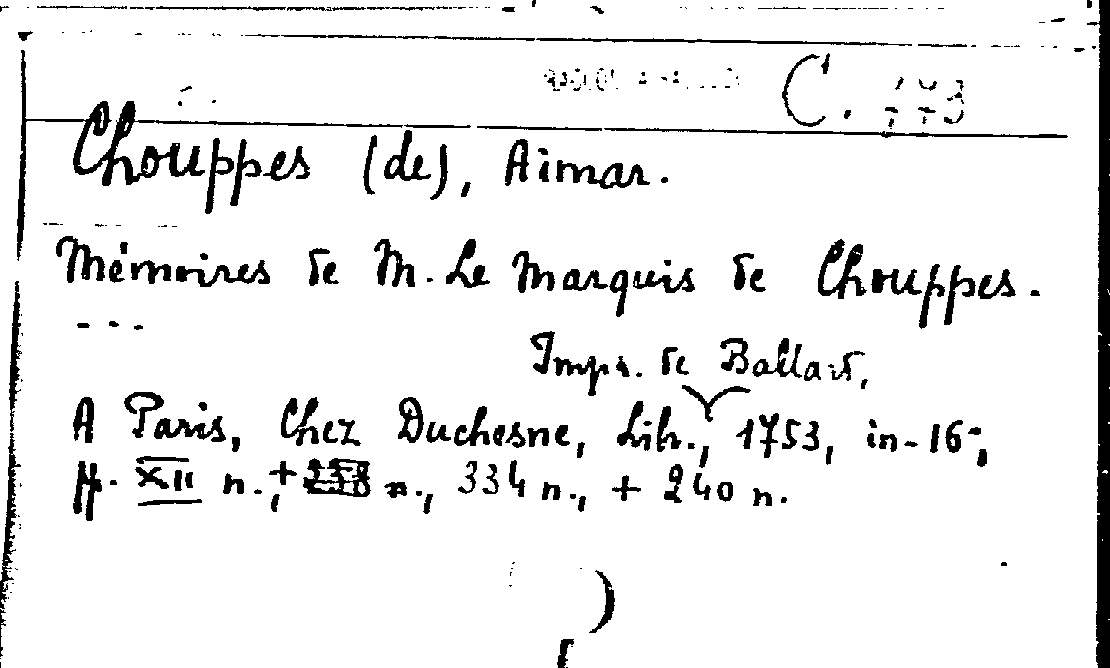 C. 773
Chouppes (de), Aimar.
Mémoires de M. Le Marquis de Chouppes.
---
Impr. de Ballard,
A Paris, Chez Duchesne, Lib., 1753, in-16;
pp. XII n., + n., 334 n., + 240 n.
)